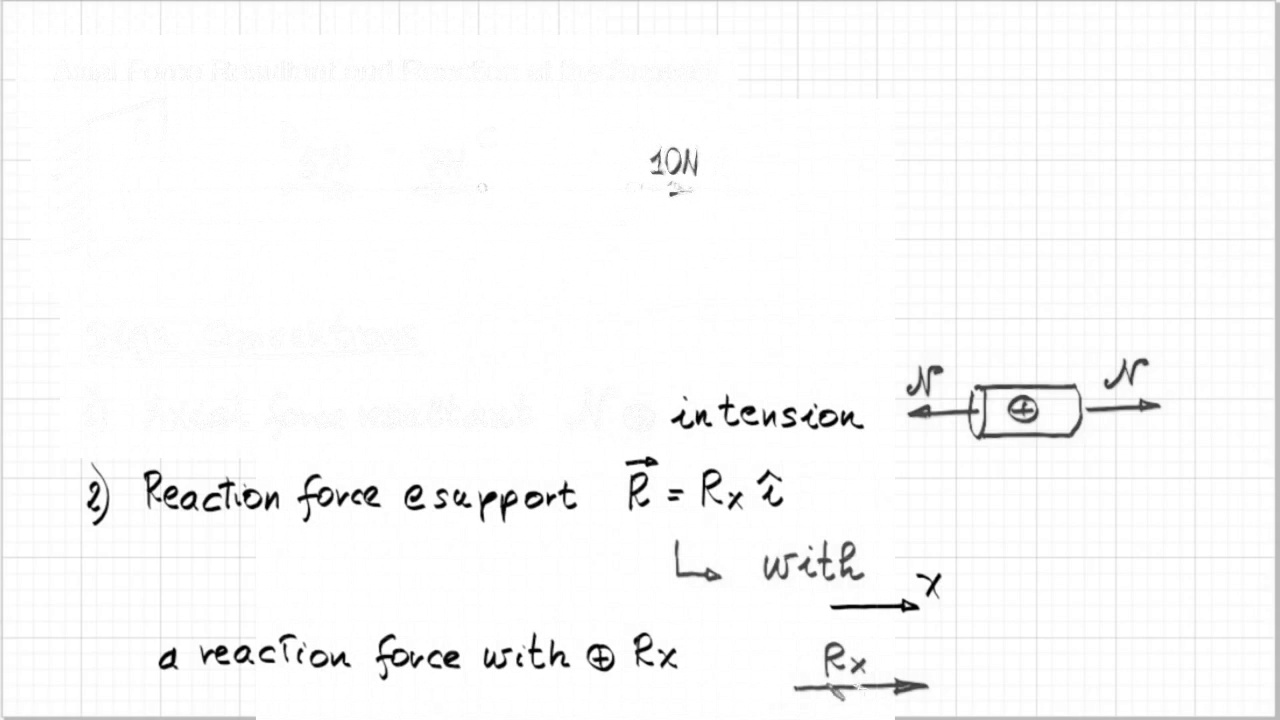 Axial Force Resultant and Reaction at the Support
10N
Sign Conventions
1) Axial force resultant N ⊕ in tension
N ⊕ N
2) Reaction force @ support R = Rx î
↳ with
x
a reaction force with ⊕ Rx
Rx